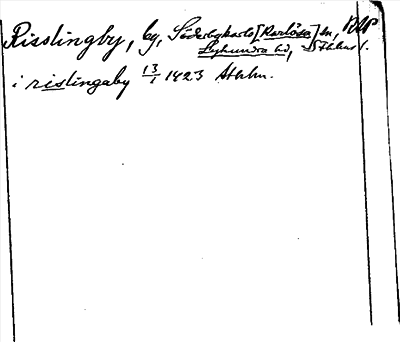 Risslingby, by, Söderbykarls [Karlösa] sn, BHP
Lyhundra hd, Sthlms l.
i rislingaby 13/1 1423 Sthlm.